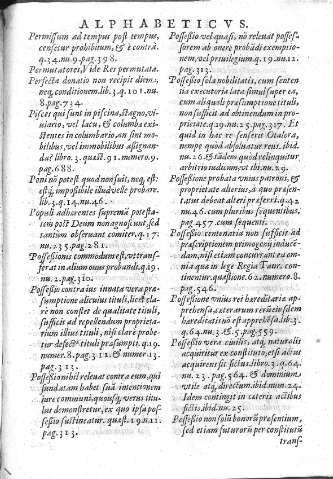 ALPHABETICVS.
Permissum ad tempus post tempus,
censetur prohibitum, & è contrà.
q.34.nu.9.pag.398.
Permutatores, Vide Res permutata.
Perfecta donatio non recipit diem,
neq; conditionem. lib.3.q.101.nu.
8.pag.734.
Pisces qui sunt in piscina, stagno, vi-
uario, vel lacu, & columbæ exi-
stentes in columbario, an sint mo-
bilibus, vel immobilibus assignan-
da? libro.3.quæst.91.numero.9.
pag.688.
Pœni nō potest quod non fuit, neq; est:
est q; impossibile illud velle probare.
lib.3.q.14.nu.46.
Populi adhærentes supremæ potesta-
tem post Deum non agnoscunt, sed
tantùm obseruant comiter.q.17.
nu.235.pag.281.
Possessionis commodum est, vt transfe-
rat in alium onus probandi.q.19.
nu.2.pag.310.
Possessio contra ius innata vera præ-
sumptione alicuius tituli, licèt cla-
rè non constet de qualitate tituli,
sufficit ad repellendum proprieta-
rium illius tituli, nisi clarè probe-
tur defectꝰ tituli præsumpti.q.19.
numer.8.pag.311.& numer.13.
pag.313.
Possessio nihil releuat contra eum, qui
fundatam habet suā intentionem
iure communi: quousq; verus titu-
lus demonstretur, ex quo ipsa pos-
sessio sustineatur. quæst.19.nu.12.
pag.313.
Possessio vel quasi, nō releuat posses-
sorem ab onere probādi exemptio-
nem, vel priuilegium.q.19.nu.12.
pag.313.
Possessio sola nobilitatis, cum senten-
tia executoria lata simul super ea,
cum aliquali præsumptione tituli,
non sufficit ad obtinendum in pro-
prietate.q.19.nu.25.pag.317. Et
quid in hac re senserit Otalora,
nempe quòd absoluatur reus. ibid.
nu.26.& tādem quòd relinquitur
arbitrio iudicum, vt ibi.nu.29.
Possessione probata vnius patroni, &
proprietate alterius, à quo præsen-
tatus debeat alteri præferri.q.42
nu.46. cum pluribus sequentibus,
pag.457. cum sequent.
Possessio centenaria non sufficit ad
præscriptionem primogenij inducē-
dam, nisi etiam concurrant ea om-
nia quæ in lege Regia Taur. con-
tinentur, quæstion.62.numero.8.
pag.546.
Possessione vnius rei hæreditariæ ap-
prehensa, cæterarum eiusdem
hæreditatis nō est apprehensa.lib.3.
q.64.nu.3.& 5.pag.559.
Possessio vera ciuilis, atq; naturalis
acquiritur ex constituto, etsi adsui
acquirerent sit fictus. libro.3.q.64.
nu.23.pag.564. & dominium
vtile atq; directum. ibid.num.24.
Idem contingit in cæteris actibus
fictis. ibid.nu.25.
Possessio non solùm bonorū præsentium,
sed etiam futurorū per constitutū
trans-